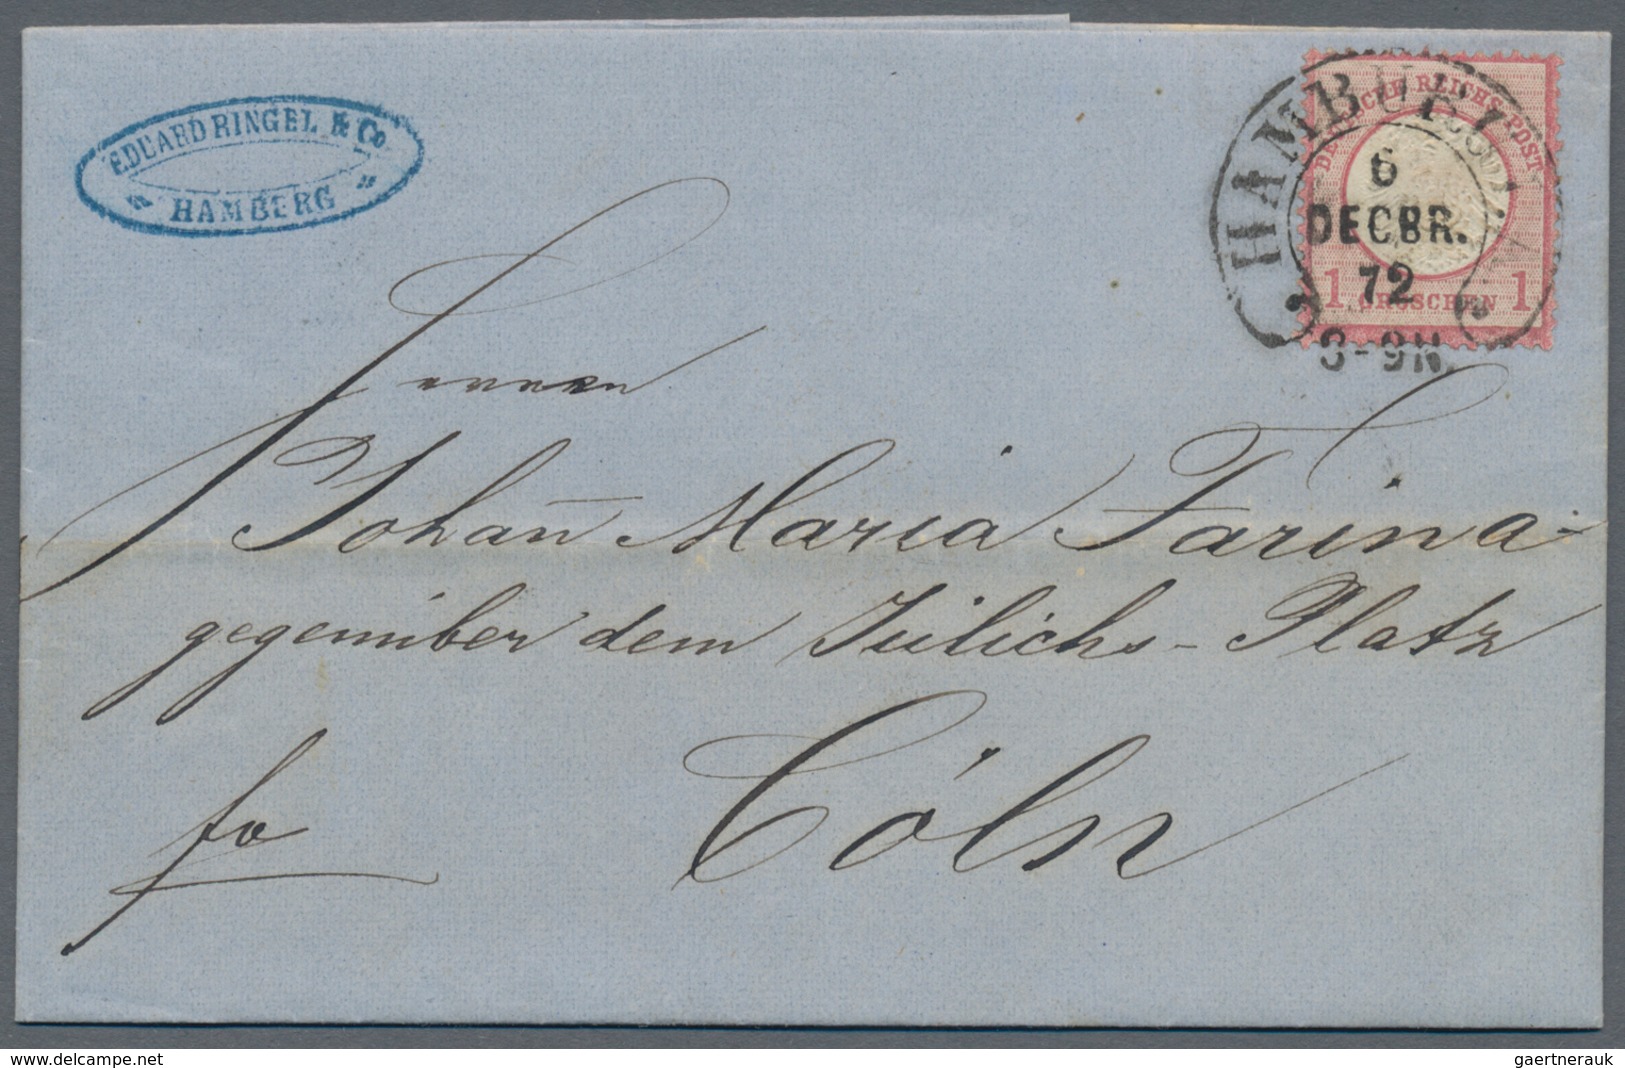 EDUARD RINGEL & Co
HAMBERG
HAMBURG I.
DEUTSCHE REICHS-POST
6
DECBR.
72
1 GROSCHEN 1
8-9N.
Herren
Johan̄ Maria Farina
gegenüber dem Jülichs-Platz
fo Cöln
www.delcampe.net
gaertnerauk